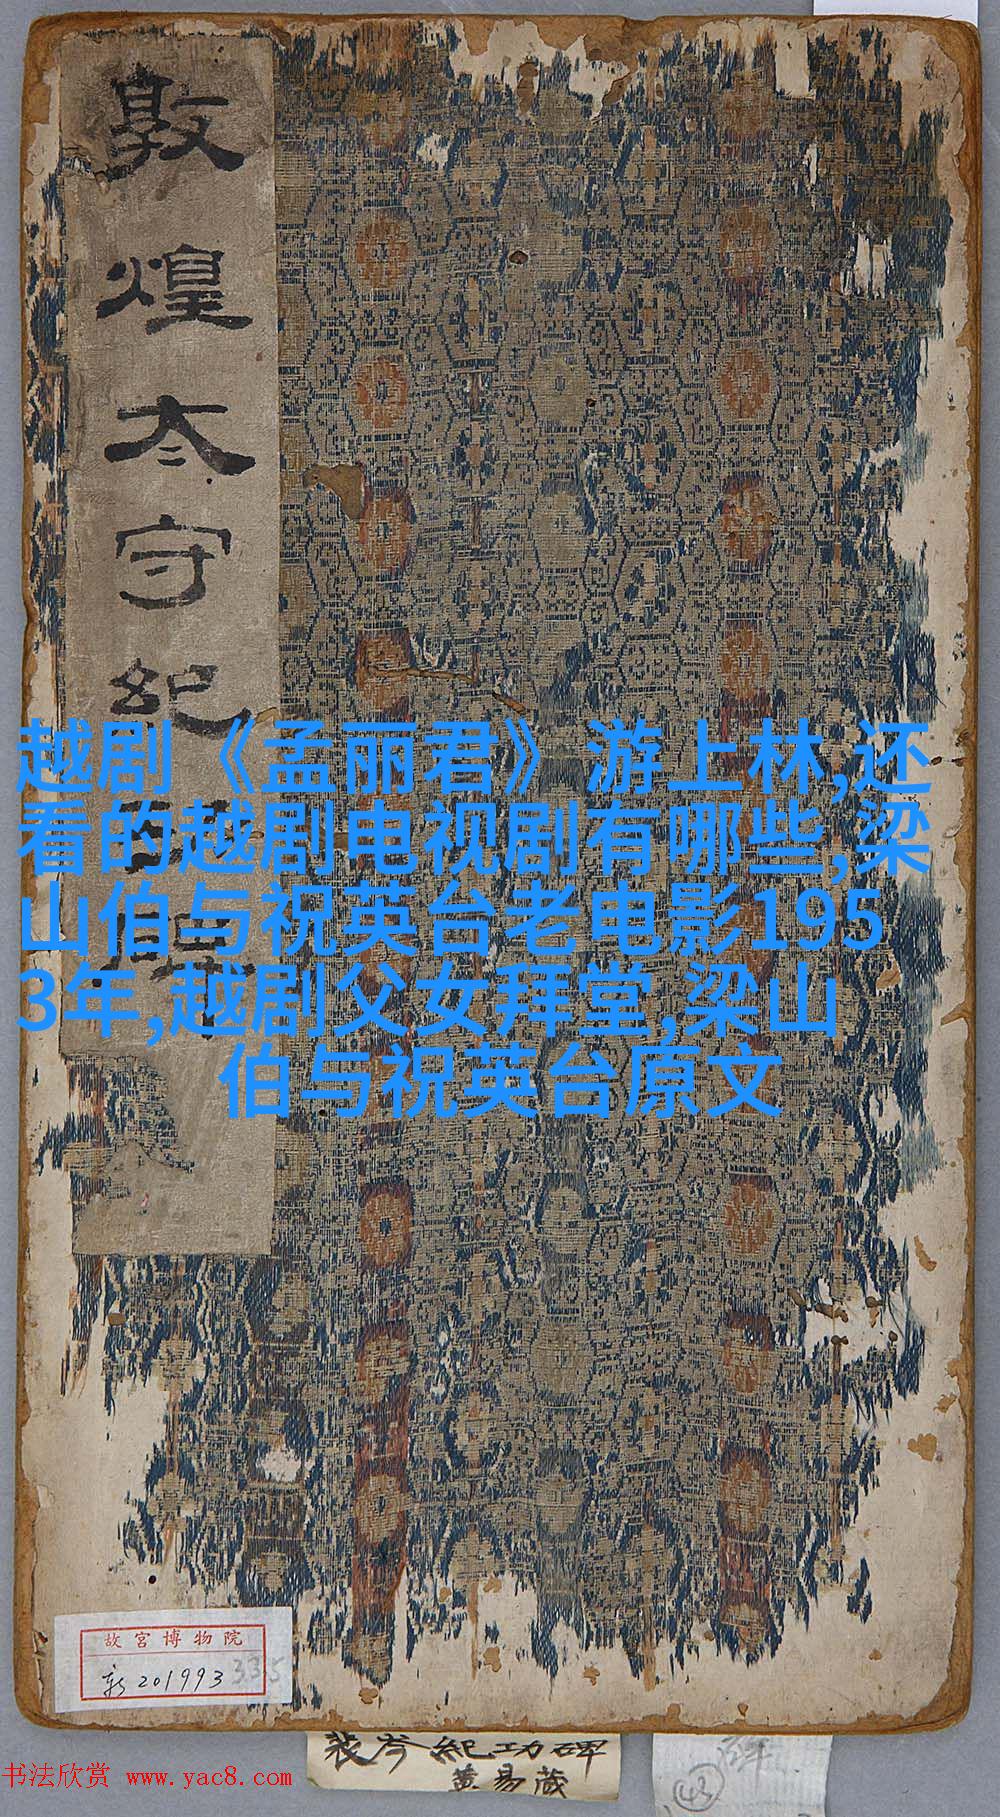 敦煌太守紀
越剧《孟丽君》游上林,还
看的越剧电视剧有哪些,梁
山伯与祝英台老电影195
3年,越剧父女拜堂,梁山
伯与祝英台原文
故宫博物院
新201993
335
裴岑紀功碑
黄易藏
43
书法欣赏 www.yac8.com